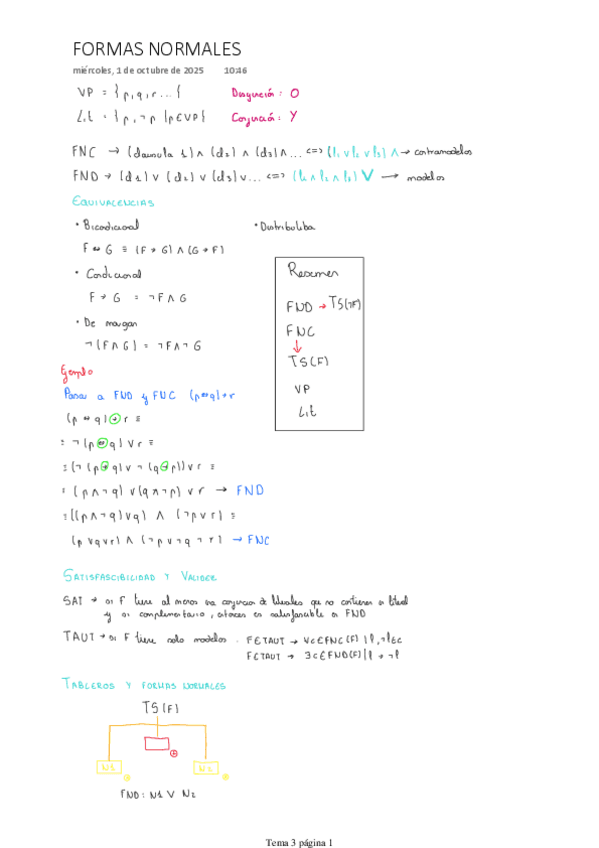 FORMAS NORMALES
miércoles, 1 de octubre de 2025 10:46
VP = {p,q,r...{ Disyunción: O
Lit = {p,¬p |p∈VP} Conjunción: Y
FNC → (clausula 1) ∧ (d2) ∧ (d3) ∧... <=> (l₁ ∨ l₂ ∨ l₃) ∧ → contramodelos
FND → (d1) ∨ (d2) ∨ (d3) ∨... <=> (l₁ ∧ l₂ ∧ l₃) ∨ → modelos
EQUIVALENCIAS
• Bicondicional • Distributiba
F ↔ G ≡ (F → G) ∧ (G → F)
• Condicional
F → G = ¬F ∧ G
• De morgan
¬(F ∧ G) = ¬F ∧ ¬G
Resumen
FND → TS(¬F)
FNC
↓
TS(F)
VP
Lit
Ejemplo
Pasar a FND y FNC (p↔q)→r
(p ↔ q) → r ≡
≡ ¬(p ↔ q) ∨ r ≡
≡ (¬(p → q) ∨ ¬(q → p)) ∨ r ≡
≡ (p ∧ ¬q) ∨ (q ∧ ¬p) ∨ r → FND
≡ ((p ∧ ¬q) ∨ q) ∧ (¬p ∨ r) ≡
(p ∨ q ∨ r) ∧ (¬p ∨ ¬q ¬ r) → FNC
SATISFASCIBILIDAD Y VALIDEZ
SAT → si F tiene al menos una conjuncion de literales que no contienen un literal
y su complementario, entonces es satisfascible en FND
TAUT → si F tiene solo modelos. F∈TAUT → ∀c∈FNC(F) | l,¬l∈c
F∈TAUT → ∃c∈FND(F) | l → ¬l
TABLEROS Y FORMAS NORMALES
TS(F)
N1 N2
FND: N1 ∨ N2
Tema 3 página 1